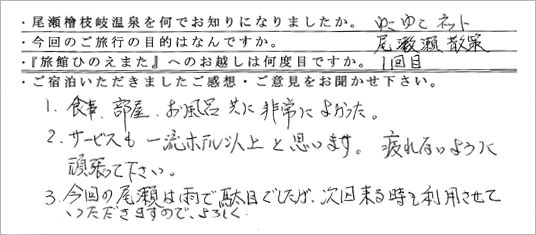 ・尾瀬檜枝岐温泉を何でお知りになりましたか。 ゆこゆこネット
・今回のご旅行の目的はなんですか。 尾瀬散策
・『旅館ひのえまた』へのお越しは何度目ですか。 1回目
・ご宿泊いただきましたご感想・ご意見をお聞かせ下さい。
1. 食事、部屋、お風呂共に非常によかった。
2. サービスも一流ホテル以上と思います。疲れないように
頑張って下さい。
3. 今回の尾瀬は雨で駄目でしたが、次回来る時も利用させて
いただきますので、よろしく。